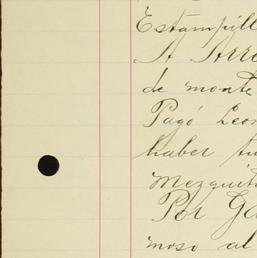 Estampill
A Arre
de monte
Pagó Leon
haber tu
Mezquit
Por Ga
moso al